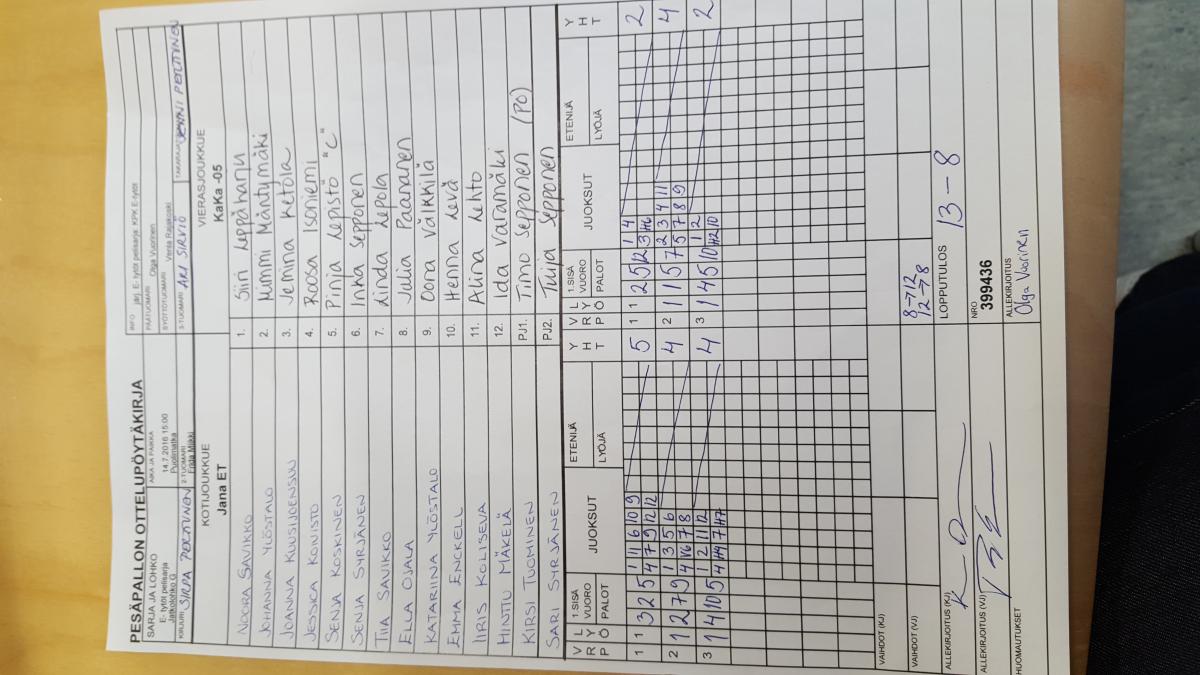 PESÄPALLON OTTELUPÖYTÄKIRJA
SARJA JA LOHKO
E- tytöt pelisarja
Jatkolohko G
AIKA JA PAIKKA
14.7.2016 15:00
Puolimatka
INFO järj. E- tytöt pelisarja: KPK E-tytöt
PÄÄTUOMARI Olga Vuorinen
SYÖTTÖTUOMARI Venla Rajakoski
KIRJURI SIRPA PERTTUNEN
2-TUOMARI
3-TUOMARI ARI SIRVIÖ
JENNI PERTTUNEN
KOTIJOUKKUE
Jana ET
VIERASJOUKKUE
KaKa -05
NOORA SAVIKKO 1. Siiri Leppäharju
JOHANNA YLÖSTALO 2. Mimmi Mäntymäki
JOANNA KUUSIJOENSUU 3. Jemina Ketola
JESSICA KONISTO 4. Roosa Isoniemi
SENJA KOSKINEN 5. Pinja Lepistö "C"
SENJA SYRJÄNEN 6. Inka Sepponen
TIIA SAVIKKO 7. Linda Lepola
ELLA OJALA 8. Julia Paananen
KATARIINA YLÖSTALO 9. Oona Välkkilä
EMMA ENCKELL 10. Henna Levä
IIRIS KOLISEVA 11. Alina Lehto
HINTTU MÄKELÄ 12. Ida Varamäki
KIRSI TUOMINEN PJ1. Timo Sepponen (PO)
SARI SYRJÄNEN PJ2. Tuija Sepponen
V R P L Y Ö 1.SISÄ VUORO PALOT JUOKSUT ETENIJÄ LYÖJÄ Y H T V R P L Y Ö 1.SISÄ VUORO PALOT JUOKSUT ETENIJÄ LYÖJÄ Y H T
1 1 3 2 5 1 11 6 10 9 5 1 1 2 5 12 1 4 2
4 7 9 12 12 3 H6
2 1 2 7 9 1 3 5 6 4 2 1 1 5 7 2 3 4 11 4
4 V6 7 8 5 7 8 9
3 1 4 10 5 1 2 11 12 4 3 1 4 5 10 1 2 2
4 H9 7 H7 H2 10
VAIHDOT (KJ)
VAIHDOT (VJ)
8→12
12→8
ALLEKIRJOITUS (KJ)
LOPPUTULOS 13 - 8
ALLEKIRJOITUS (VJ)
NRO
399436
HUOMAUTUKSET
ALLEKIRJOITUS
Olga Vuorinen